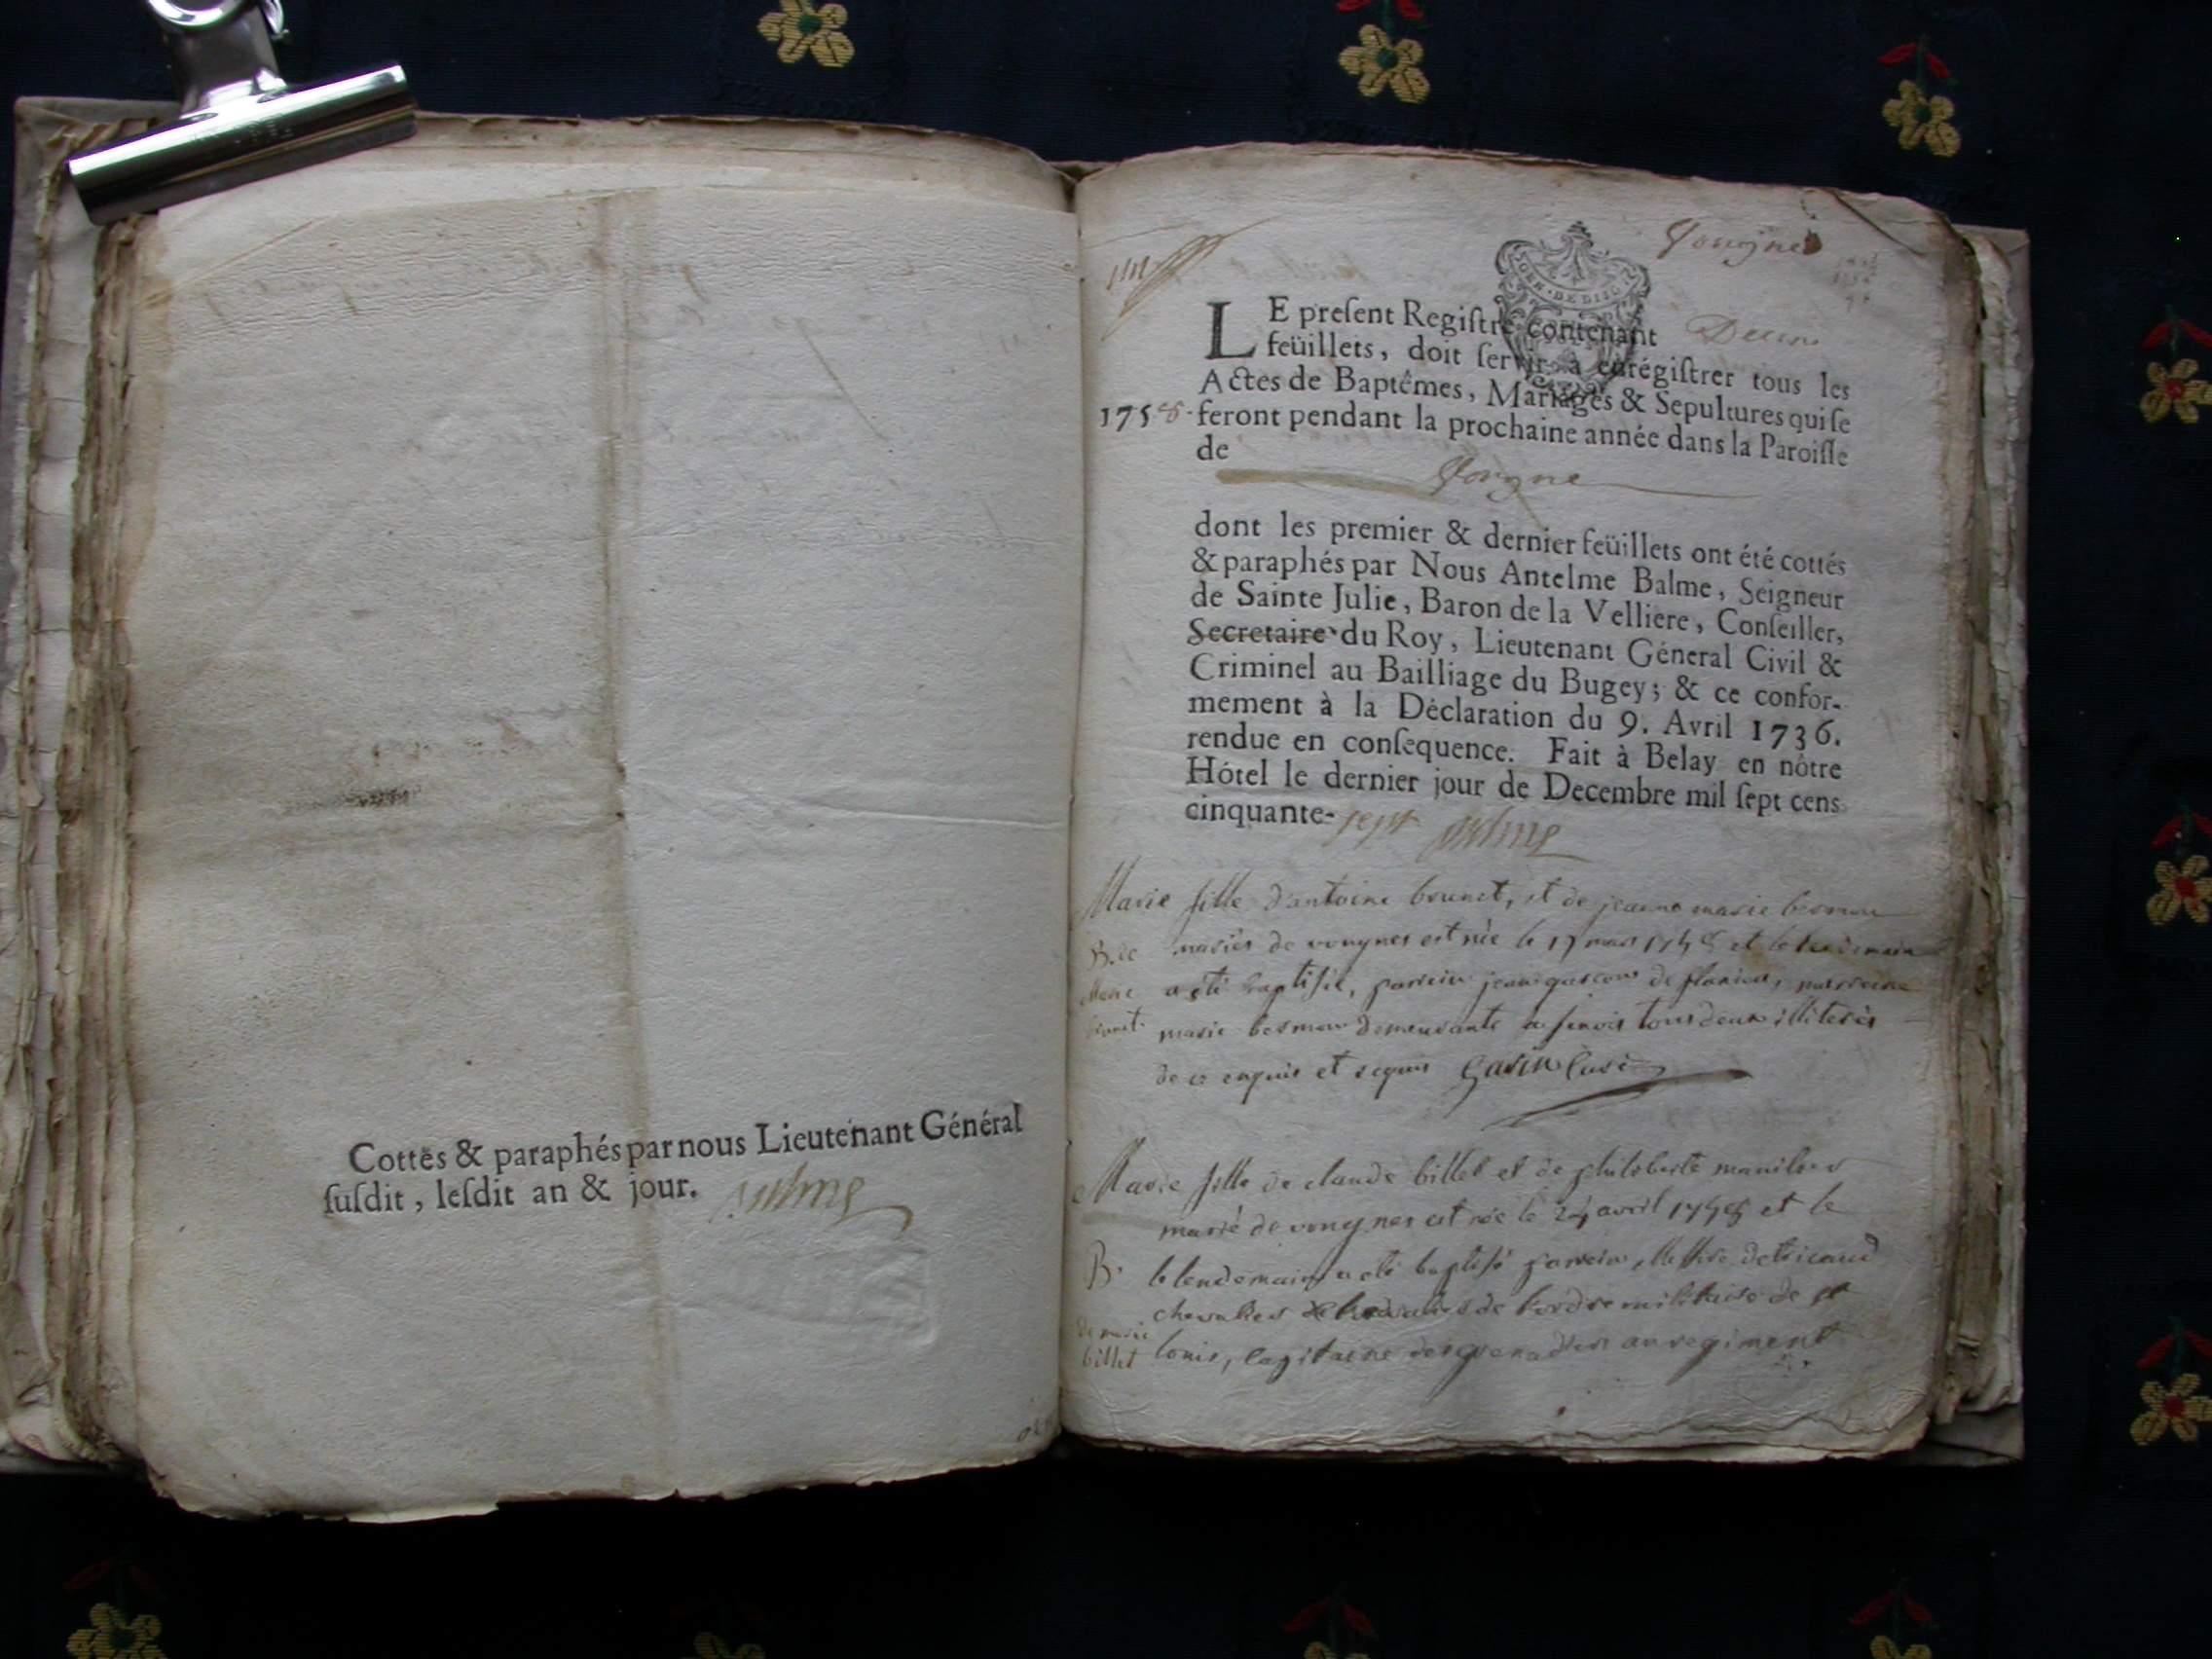 Cottés & paraphés par nous Lieutenant Général
ſuſdit, leſdit an & jour. Balme
Vougnes
LE preſent Regiſtre contenant Deux
feüillets, doit ſervir à enrégiſtrer tous les
Actes de Baptêmes, Mariages & Sepultures qui ſe
1758. feront pendant la prochaine année dans la Paroiſſe
de Vongne
dont les premier & dernier feüillets ont été cottés
& paraphés par Nous Antelme Balme, Seigneur
de Sainte Julie, Baron de la Velliere, Conſeiller,
Secretaire du Roy, Lieutenant Géneral Civil &
Criminel au Bailliage du Bugey; & ce confor-
mement à la Déclaration du 9. Avril 1736.
rendue en conſequence. Fait à Belay en nôtre
Hótel le dernier jour de Decembre mil ſept cens
cinquante-sept Balme
Marie fille d'antoine brunet, et de jeanne marie besmon
B. de mariés de vongnes est née le 17 mars 1758 et le lendemain
Marie a été baptisée, parrein jean gascon de flaxieu, marreine
brunet marie besmon demeurante a tous deux illiterés
de ce enquis et requis Gavin Curé
Marie fille de claude billet et de philiberte
marié de vongnes est née le 24 avril 1758 et le
B. le lendemain a eté baptisé parrein, Messire detricaud
chevalier de l'ordre militaire de st
de marie
billet louis, capitaine des grenadiers au regiment